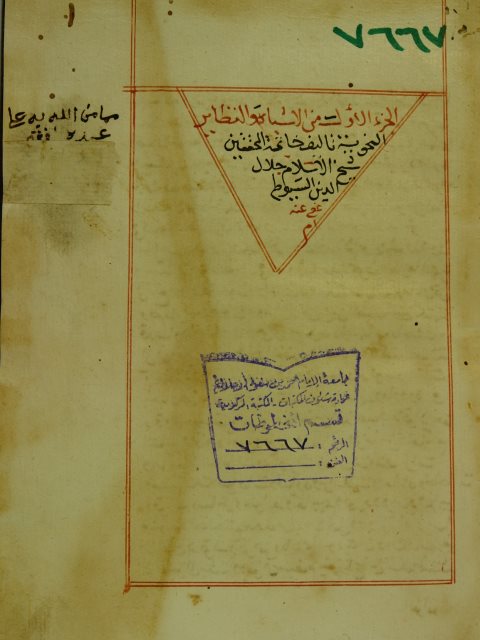 ٧٦٦٧
الجزء الأول من الاشباه والنظاير
النحوية تاليف خاتمة المحققين
شيخ الاسلام جلال
الدين السيوطي
عفي عنه
ام
مما من الله به على
عبده
جامعة الإمام محمد بن سعود الإسلامية
عمادة شئون المكتبات - المكتبة المركزية
قسم المخطوطات
الرقم : ٧٦٦٧
الفن :